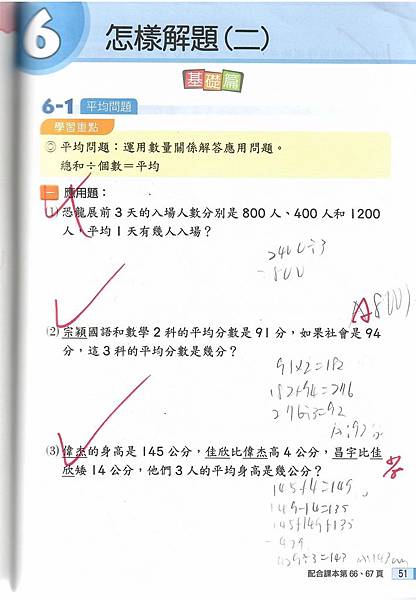 6 怎樣解題(二)
基礎篇
6-1 平均問題
學習重點
◎ 平均問題:運用數量關係解答應用問題。
總和÷個數=平均
一 應用題:
(1) 恐龍展前3天的入場人數分別是800人、400人和1200
人,平均1天有幾人入場?
2400÷3
=800
A:800人
(2) 宗穎國語和數學2科的平均分數是91分,如果社會是94
分,這3科的平均分數是幾分?
91×2=182
182+94=276
276÷3=92
A:92分
(3) 偉杰的身高是145公分,佳欣比偉杰高4公分,昌宇比佳
欣矮14公分,他們3人的平均身高是幾公分?
145+4=149
149-14=135
145+149+135
=429
429÷3=143 A:143cm
配合課本第66、67頁 51